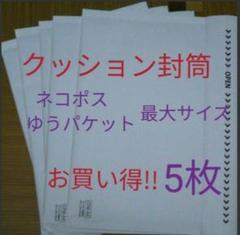 クッション封筒
ネコポス
ゆうパケット
最大サイズ
お買い得!! 5枚
OPEN